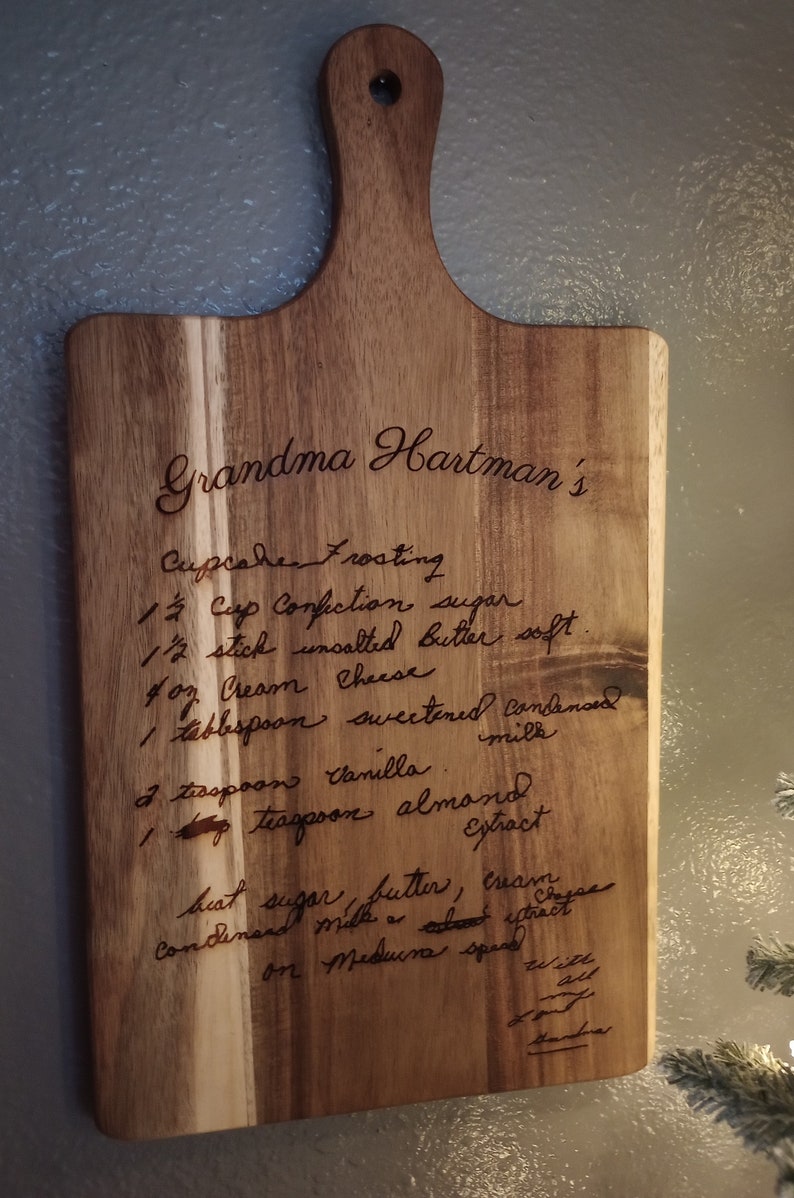 Grandma Hartman's
Cupcake Frosting
1 ½ Cup Confection sugar
1 ½ stick unsalted Butter soft.
4 oz Cream Cheese
1 tablespoon sweetened condensed
milk
2 teaspoon Vanilla.
1 teaspoon almond
Extract
beat sugar, butter, cream
cheese
condensed milk & extract
on Medium speed
With
all
my
Love
Grandma